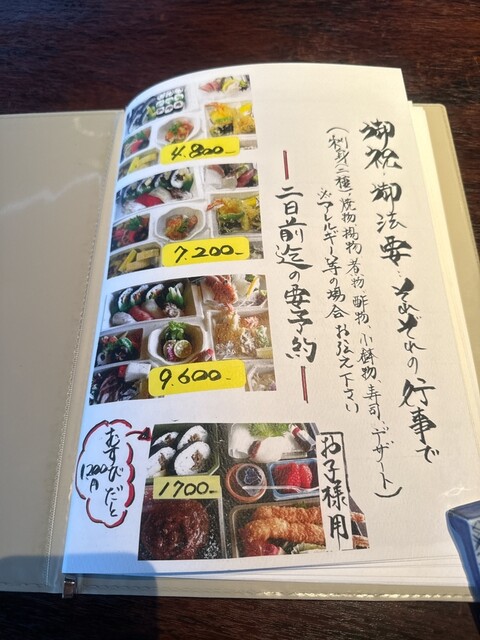 御祝・御法要・それぞれの行事で
(刺身二種、焼物、揚物、煮物、酢物、小鉢物、寿司、デザート)
※アレルギー等の場合お伝え下さい
二日前迄の要予約
4.800-
7.200-
9.600-
お子様用
1700-
むすびだと
1200円